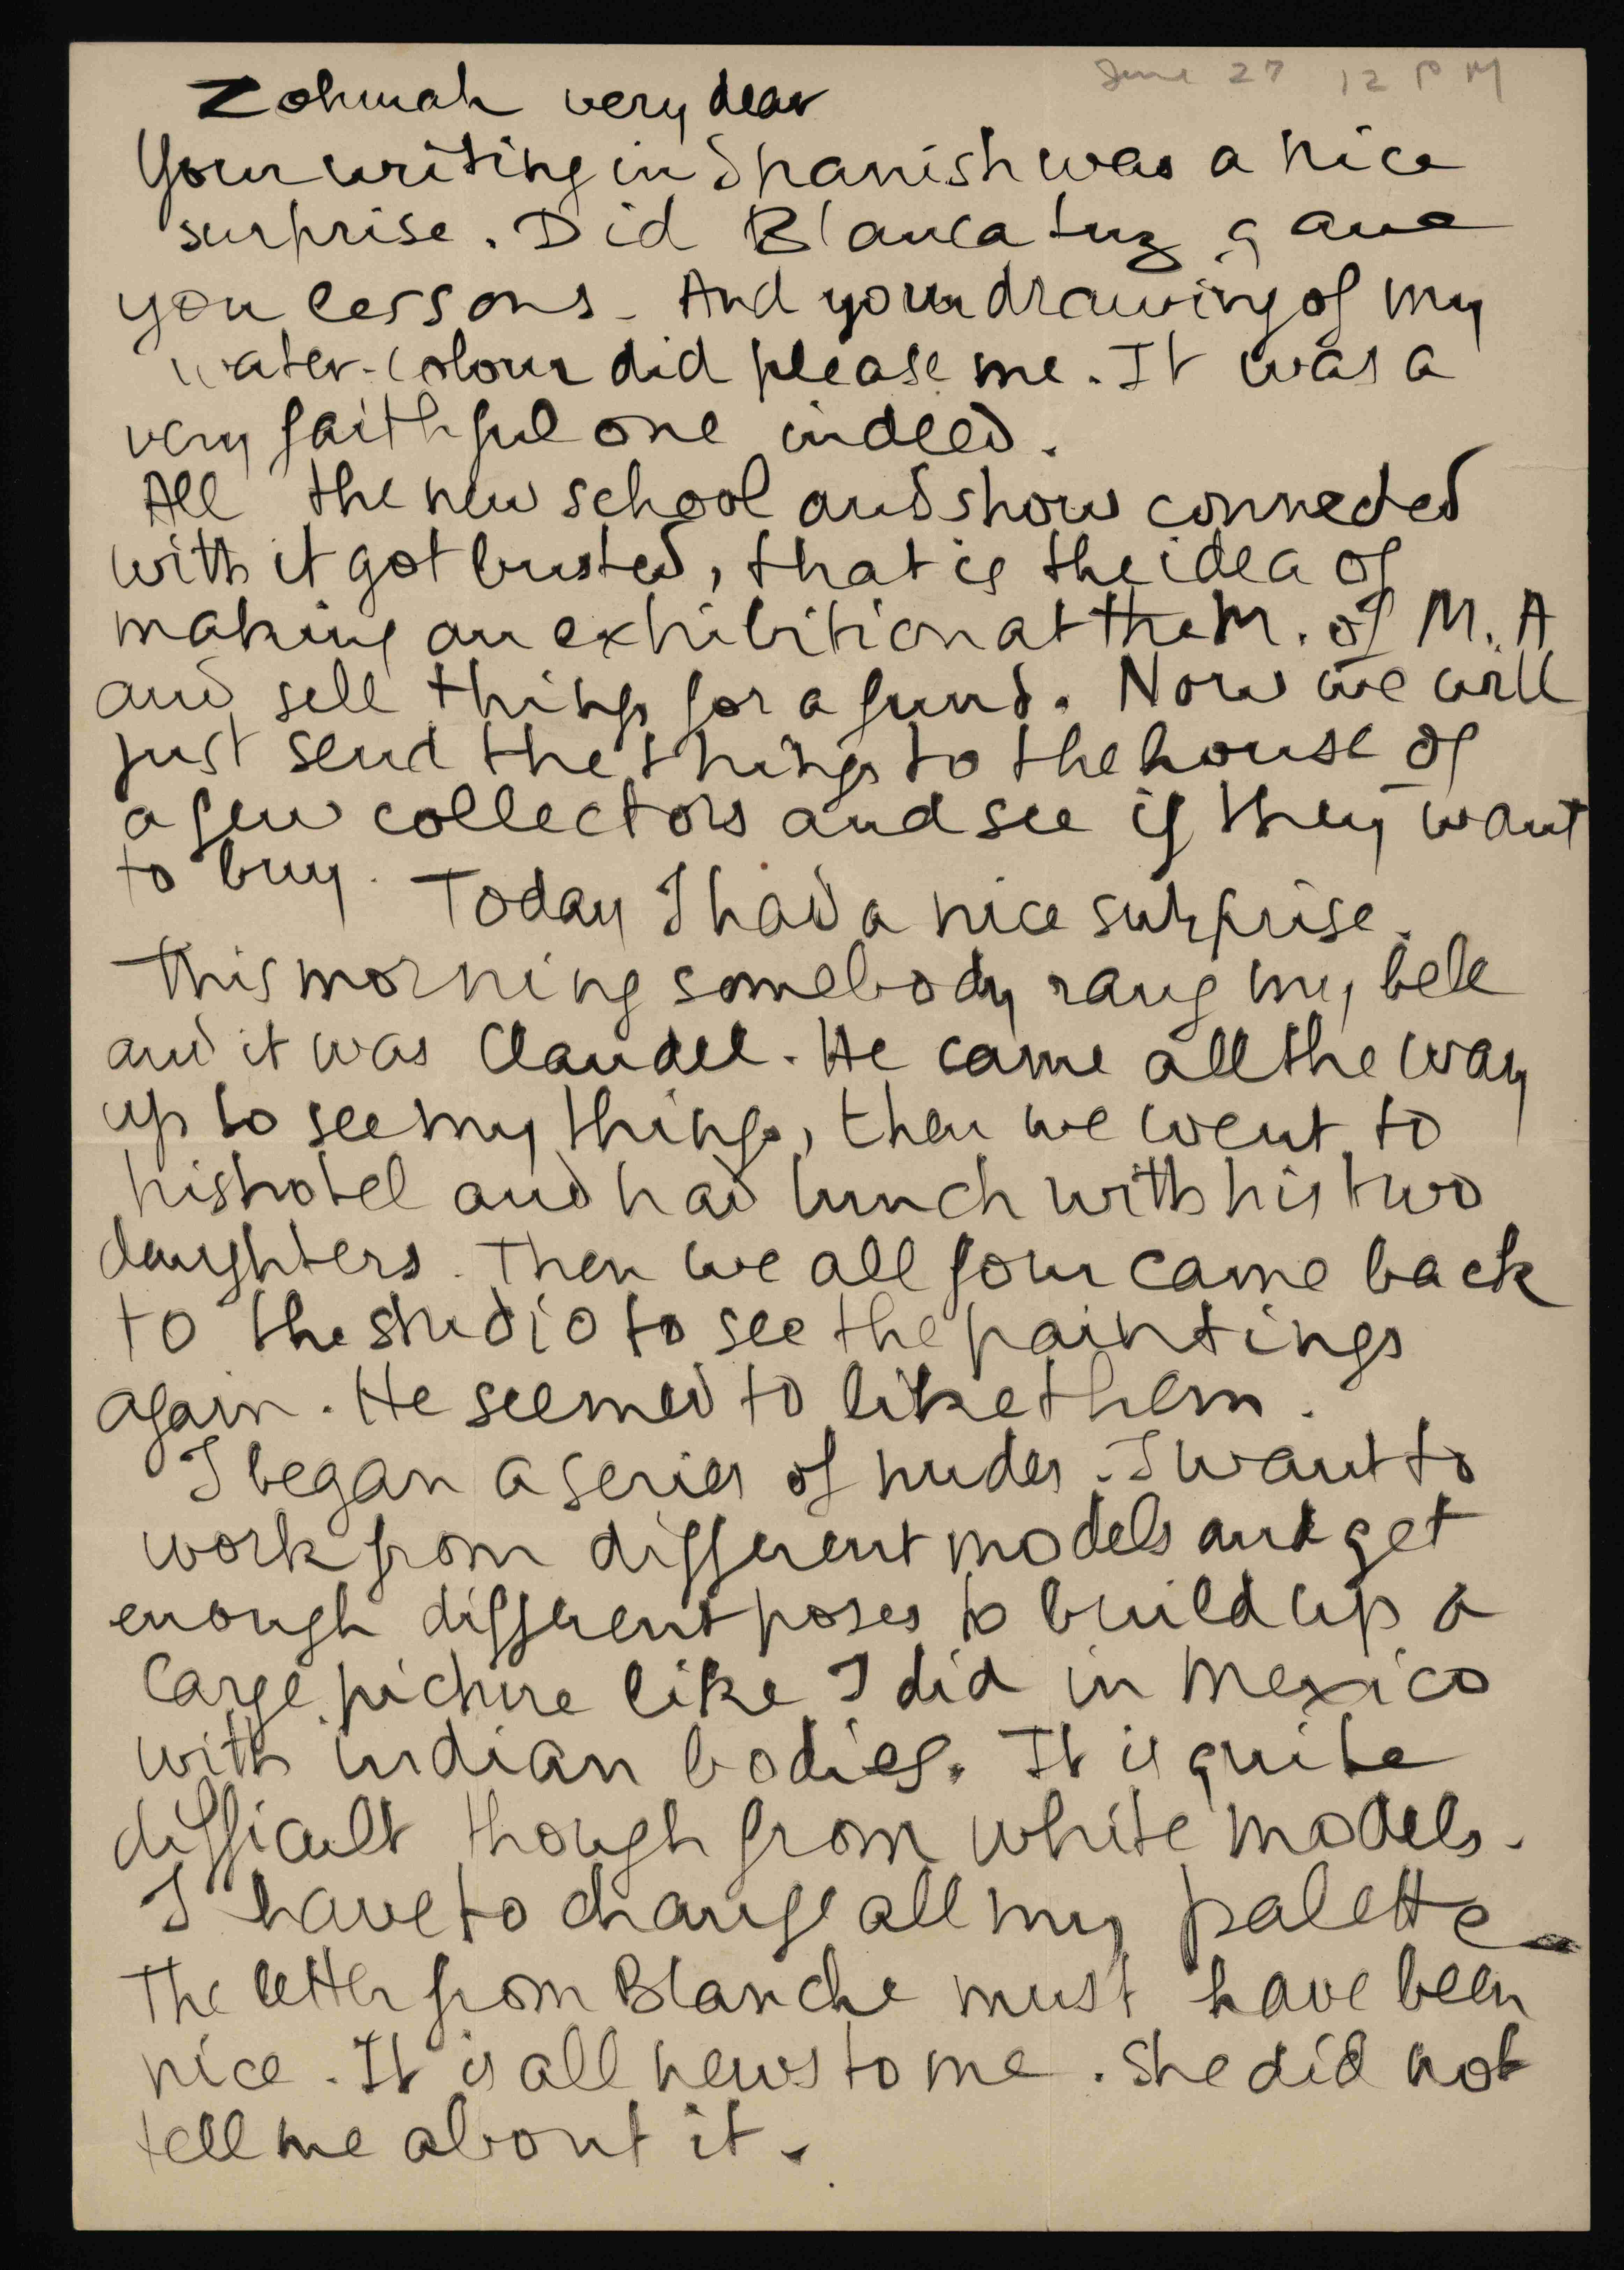 June 27 12 PM
Zohmah very dear
Your writing in Spanish was a nice
surprise. Did Blanca Luz gave
you lessons. And your drawing of my
water-colour did please me. It was a
very faithful one indeed.
All the new school and show connected
with it got busted, that is the idea of
making an exhibition at the M. of M. A
and sell things for a fund. Now we will
just send the things to the house of
a few collectors and see if they want
to buy. Today I had a nice surprise.
This morning somebody rang my bell
and it was Claudel. He came all the way
up to see my things, then we went to
his hotel and had lunch with his two
daughters. Then we all four came back
to the studio to see the paintings
again. He seemed to like them.
I began a series of nudes. I want to
work from different models and get
enough different poses to build up a
large picture like I did in Mexico
with indian bodies. It is quite
difficult though from white models.
I have to change all my palette
The letter from Blanche must have been
nice. It is all news to me. She did not
tell me about it.